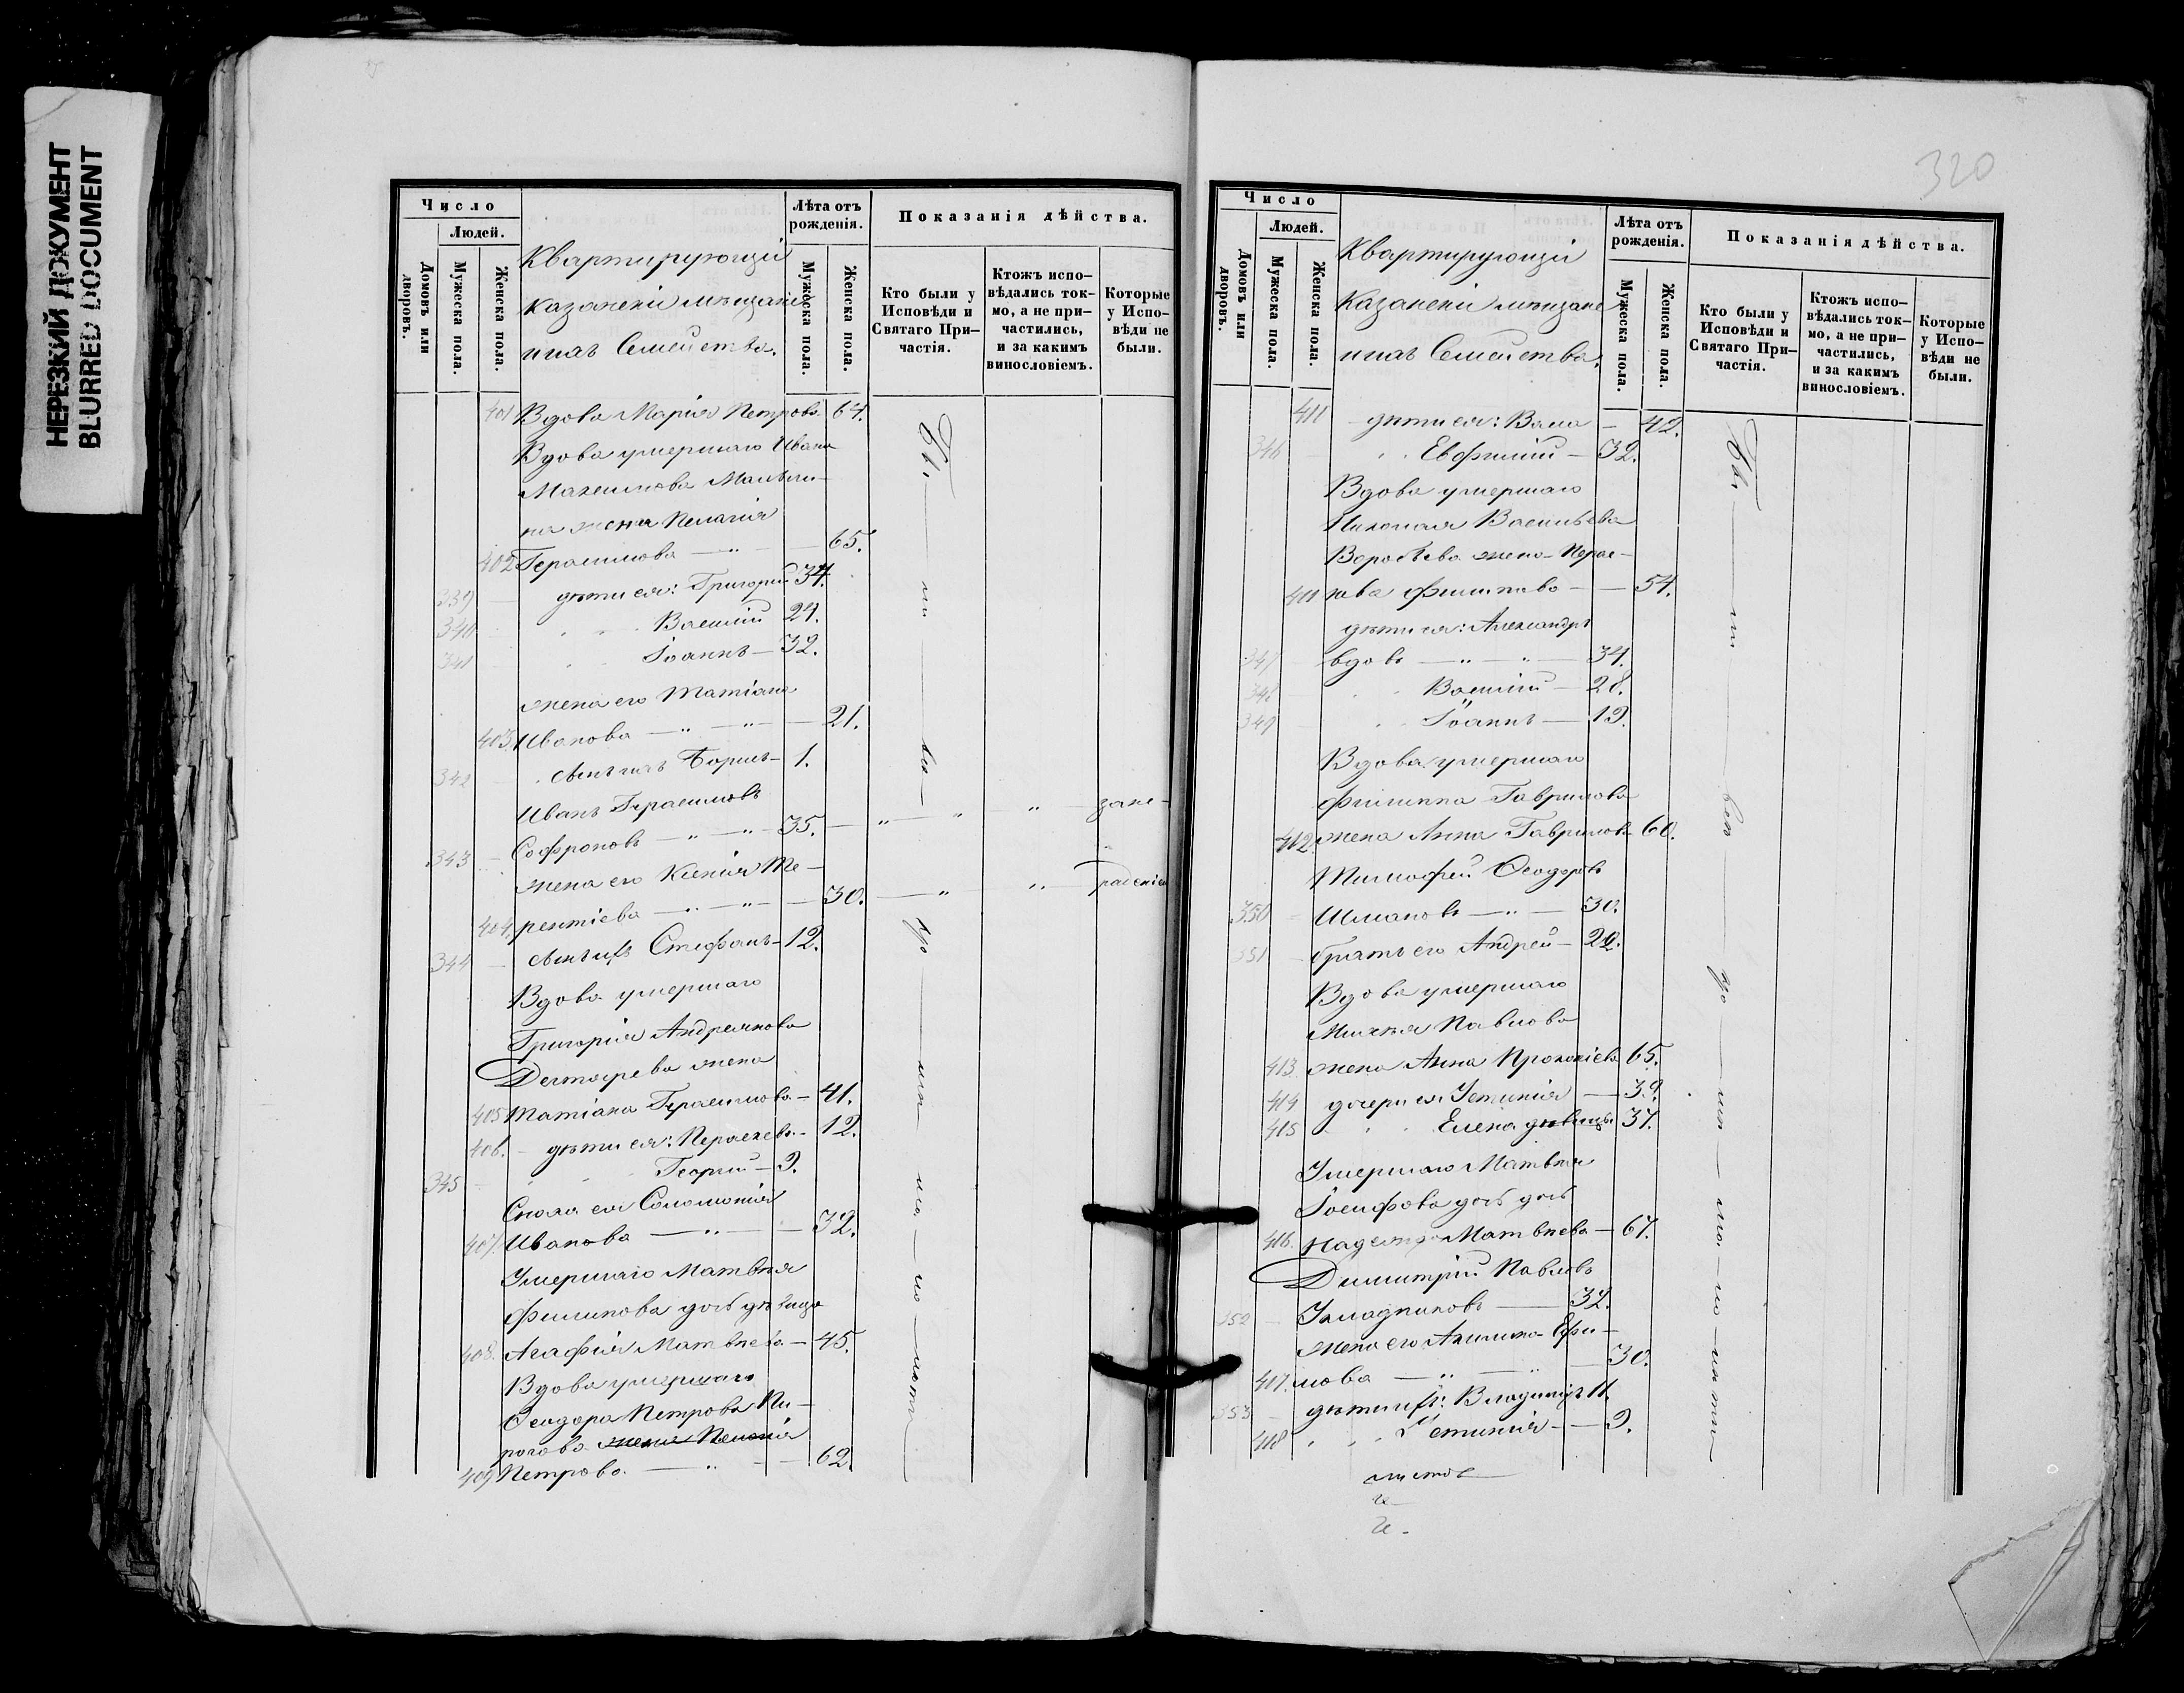 НЕРЕЗКИЙ ДОКУМЕНТ
BLURRED DOCUMENT
Число
Людей.
Домовъ или дворовъ.
Мужеска пола.
Женска пола.
Квартирующій
Казанскіи мѣщане
ихъ Семейства.
Лѣта отъ рожденія.
Мужеска пола.
Женска пола.
Показанія дѣйства.
Кто были у Исповѣди и Святаго Причастія.
Ктожъ исповѣдались токмо, а не причастились, и за какимъ винословіемъ.
Которые у Исповѣди не были.
401 Вдова Марія Петрова 64.
Вдова умершаго Ивана
жена Пелагія
402 Герасимова — 65.
339 дѣти ея: Григорій 34.
340 Василій 24.
341 Іоаннъ — 32.
жена его Татіана
403. Иванова — 21.
342 сынъ ихъ Борисъ — 1.
Иванъ Герасимовъ
343 Софроновъ — 35. — " " " зане-
жена его Ксенія Те-
404. рентіева — 30. — " " радѣніем
344 сынъ ихъ Стефанъ — 12.
Вдова умершаго
Григорія Андреянова
Дегтярева жена
405 Татіана Герасимова — 41.
406. дѣти ея: Параскева — 12.
345 Георгій — 9.
Сноха ея Соломонія
407. Иванова — 32.
Умершаго Матвѣя
Филипова дочь дѣвица
408. Агафія Матвѣева — 45.
Вдова умершаго
Ѳеодора Петрова Пи-
рогова жена Пелагія
409 Петрова — 62.
320
Число
Людей.
Домовъ или дворовъ.
Мужеска пола.
Женска пола.
Квартирующій
Казанскіи мѣщане
ихъ Семейства.
Лѣта отъ рожденія.
Мужеска пола.
Женска пола.
Показанія дѣйства.
Кто были у Исповѣди и Святаго Причастія.
Ктожъ исповѣдались токмо, а не причастились, и за какимъ винословіемъ.
Которые у Исповѣди не были.
411 дѣти ея: — 42.
346 Евфимій — 32.
Вдова умершаго
Николая Васильева
Воробьева жена Парас-
411 кова Филипова — 54.
дѣти ея: Александръ
347 вдовъ — 34.
348 Василій — 28.
349 Іоаннъ — 19.
Вдова умершаго
Филиппа Гаврилова
412. жена Анна Гаврилова 60.
Тимофей Ѳеодоровъ
350 Шмаковъ — 30.
351 братъ его Андрей — 20.
Вдова умершаго
Михея Павлова
413. жена Анна Прокопіева 65.
414 дочери ея Устинія — 39.
415 Елена дѣвицы 37.
Умершаго Матвѣя
Іосифова дочь дочь
416. Надежда Матвѣева — 67.
Димитрій Павловъ
352 — 32.
жена его Акилина Ефи-
417. мова — 30.
353 дѣти ихъ: Владиміръ 11.
418 Устинія — 9.
листов